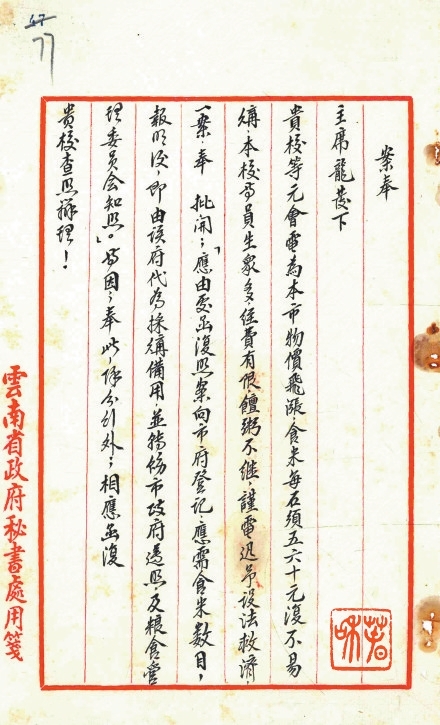 47
77
案奉
主席龍發下
貴校等元會電為本市物價飛漲食米每石須五六十元復不易
購,本校員生眾多,經費有限,饘粥不繼,謹電迅予設法救濟,
一案,奉 批開:「應由處函復照案向市府登記,應需食米數目,
報明後,即由該府代為採購備用並轉飭市政府遵照,及糧食管
理委員會知照。」等因;奉此,除分行外,相應函復
貴校查照辦理!
雲南省政府秘書處用箋